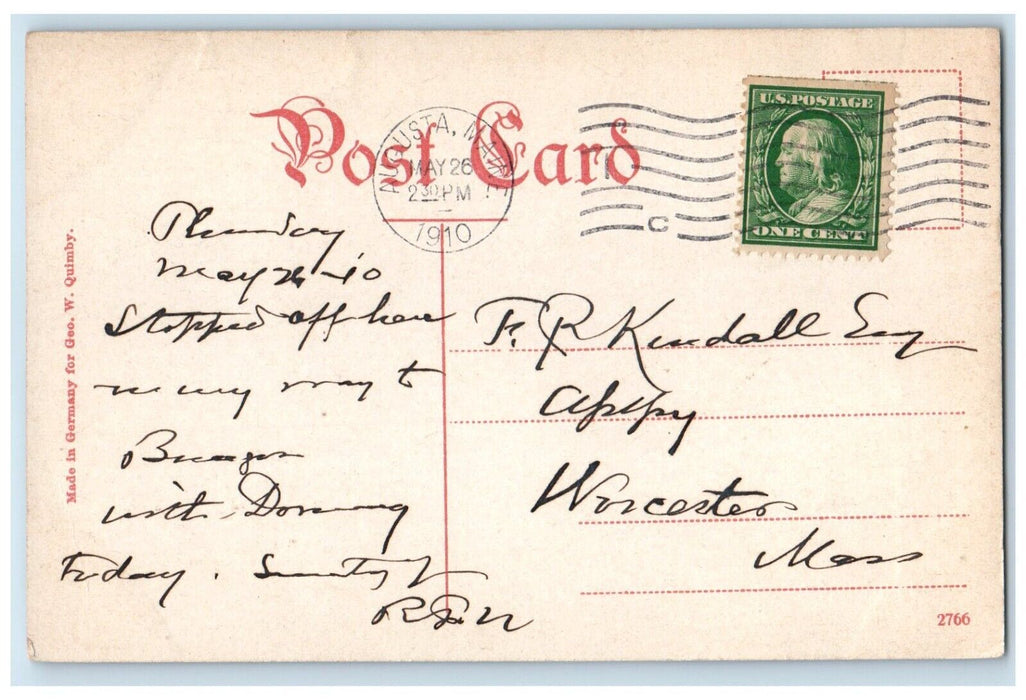 Post Card
AUGUSTA, MAINE
MAY 26
2 30 PM
1910
C
U.S. POSTAGE
ONE CENT
Made in Germany for Geo. W. Quimby.
Thursday
May 26-10
Stopped off here
on my way to
with
Friday.
F. R. Kendall Esq
Worcester
Mass
2766